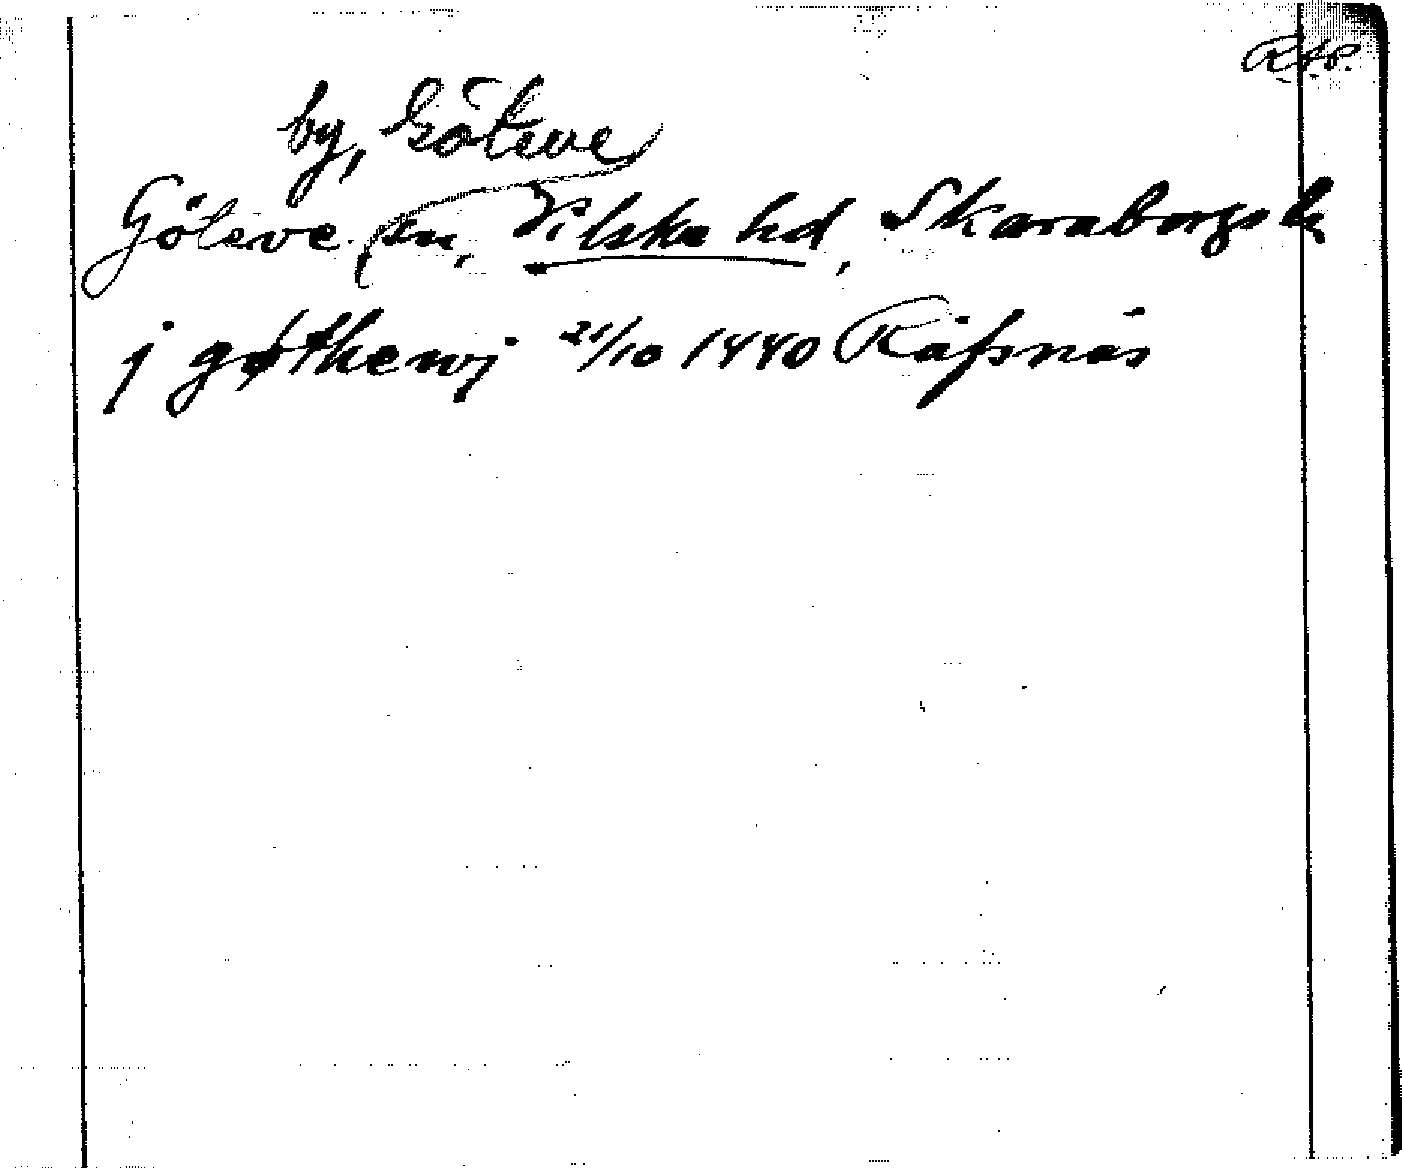 RAP.
by, Göteve
Göteve sn, Vilske hd, Skaraborgs l.
j gøthewj 21/10 1440 Räfsnäs